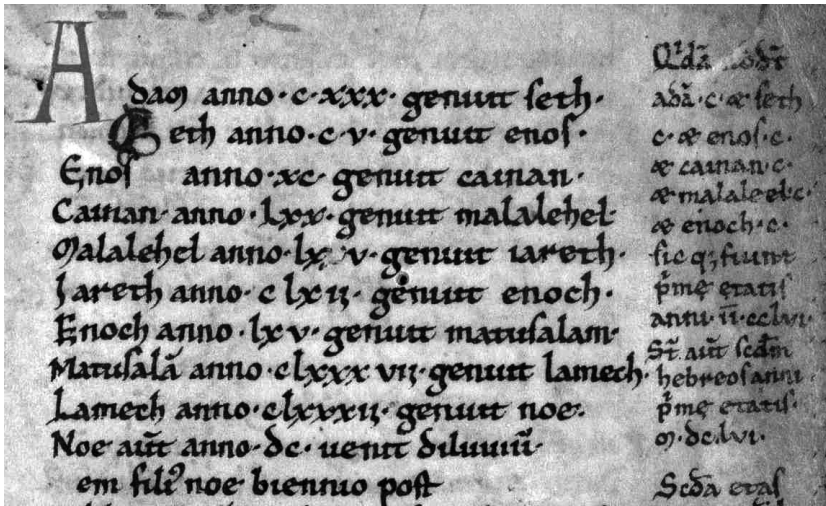 Adam anno · c · xxx · genuit seth ·
Seth anno · c · v · genuit enos ·
Enos anno · xc · genuit cainan ·
Cainan · anno · lxx · genuit malalehel ·
Malalehel anno · lx v · genuit iareth ·
Jareth anno · c lxii · genuit enoch ·
Enoch anno · lx v · genuit matusalam ·
Matusalā anno · clxxx vii · genuit lamech ·
Lamech anno · clxxxii · genuit noe ·
Noe aūt anno · dc · uenit diluuiū ·
em filiꝰ noe biennio post
adā · c · æ seth
c · æ enos · c ·
æ cainan · c ·
æ malaleel · c ·
æ enoch · c ·
sic qꝫ fiunt
p̄mę ętatis
anni · ii · cclvi ·
St̄ aūt scd̄m
hebreos anni
p̄mę etatis ·
m · dc · lvi ·
Scd̄a etas